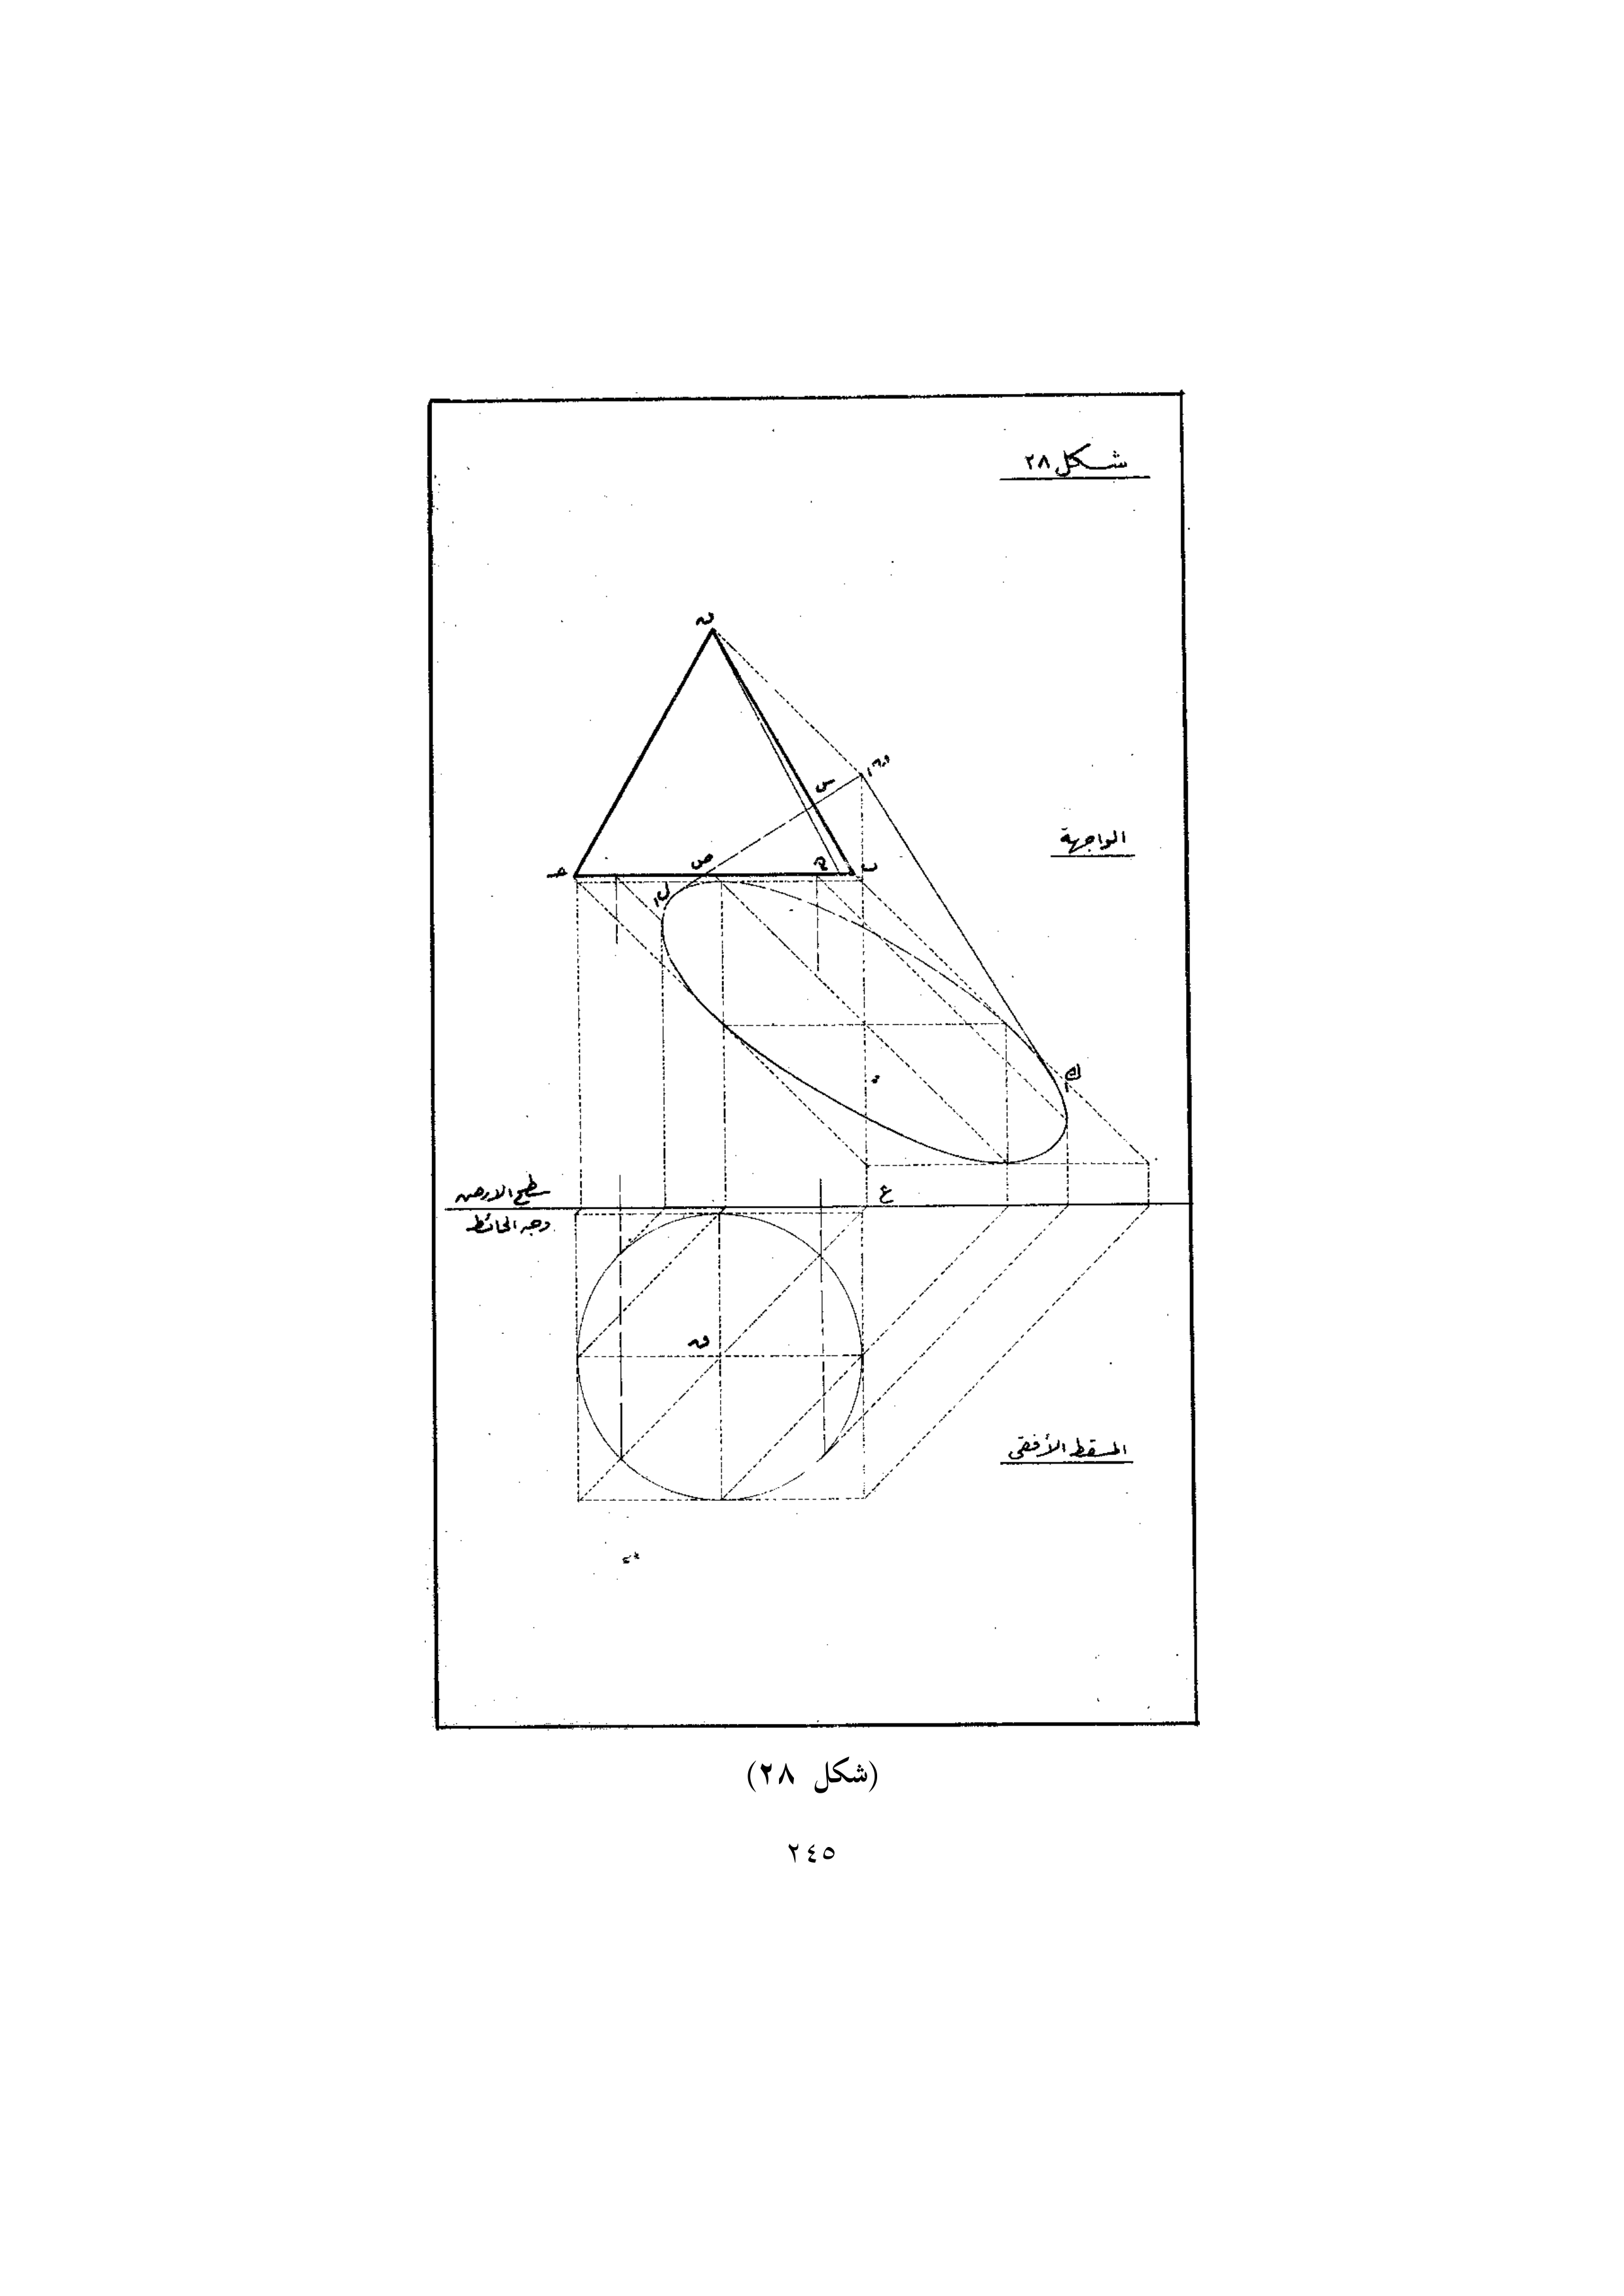 شكل ٢٨
س
الواجهة
ص
ب
ع
سطح الارض
وجه الحائط
المسقط الأفقى
(شكل ٢٨)
٢٤٥